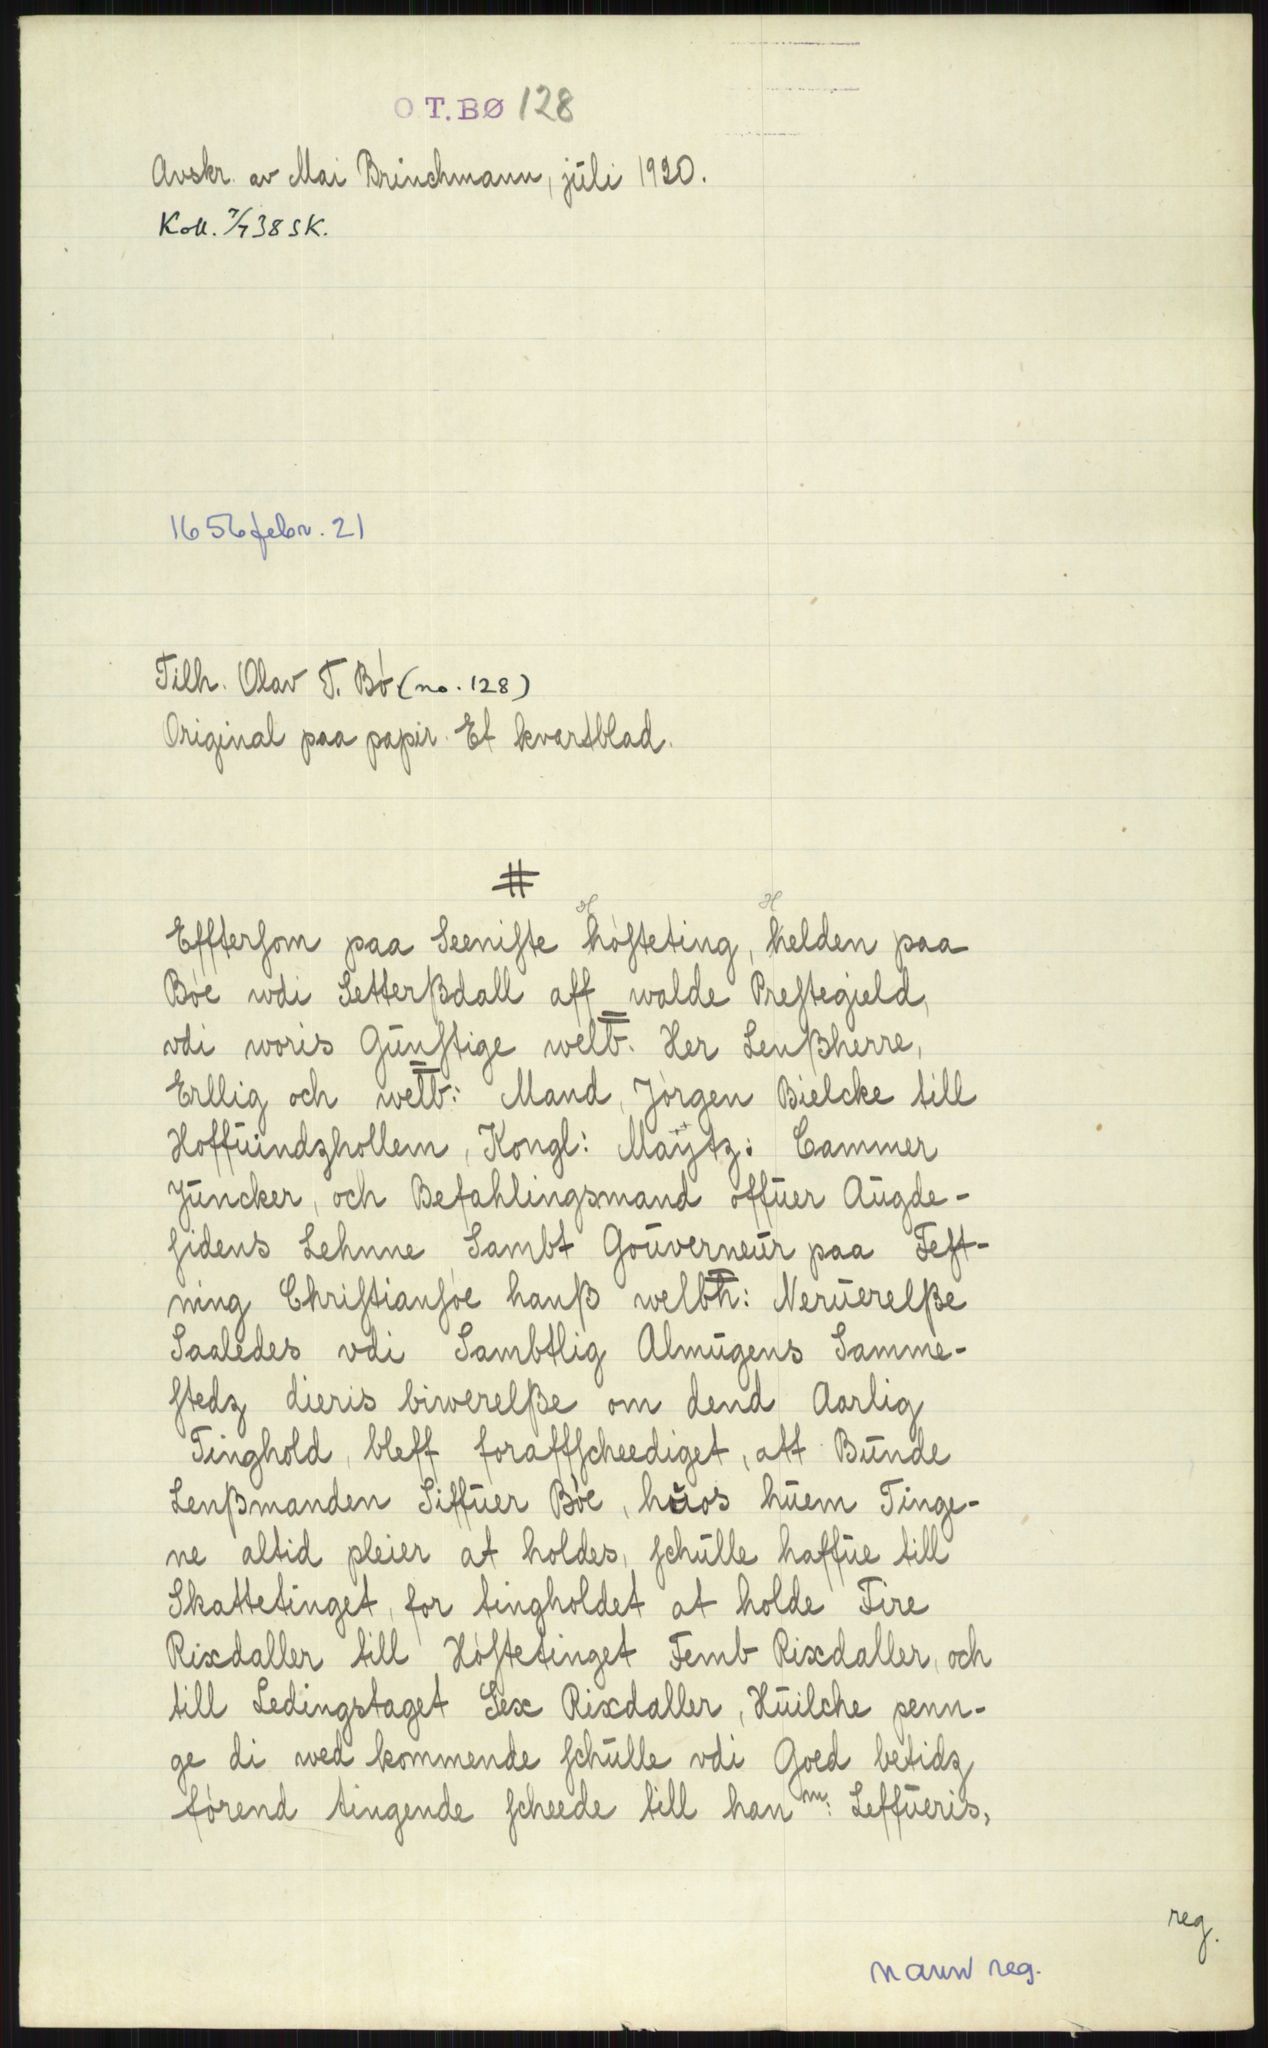 O T. BØ 128
Avskr. av Mai Brinchmann, juli 1920.
Koll. 7/7 38 SK.
1656 febr. 21
Tilh. Olav T. Bø (no. 128)
Original paa papir. Et kvartblad.
#
H H
Efftersom paa Seeniste høsteting, helden paa
Bøe wdi Setterßdall aff walde Prestegield,
vdi woris Gunstige welb. Her Lenßherre,
Erllig och welb: Mand, Jørgen Bielcke till
Hoffuindzhollem, Kongl: Maÿtz: Cammer
Juncker, och Befahlingsmand offuer Augde-
sidens Lehnne, Sambt Gouverneur paa Fest-
ning Christiansøe hanß welbh: Neruerelße
Saaledes vdi Sambtlig Almugens Samme-
stedz dieris biwerelße om dend Aarlig
Tinghold, bleff foraffscheediget, att Bunde
Lenßmanden Siffuer Bøe, huos huem Tinge-
ne altid pleier at holdes, schulle haffue till
Skattetinget, for tingholdet at holde Fire
Rixdaller till Høstetinget Femb Rixdaller, och
till Ledingstaget Sex Rixdaller, Huilche penn-
ge di wed kommende schulle vdi Goed betidz
førend tingende scheede till han m: Leffueris,
reg.
navn reg.